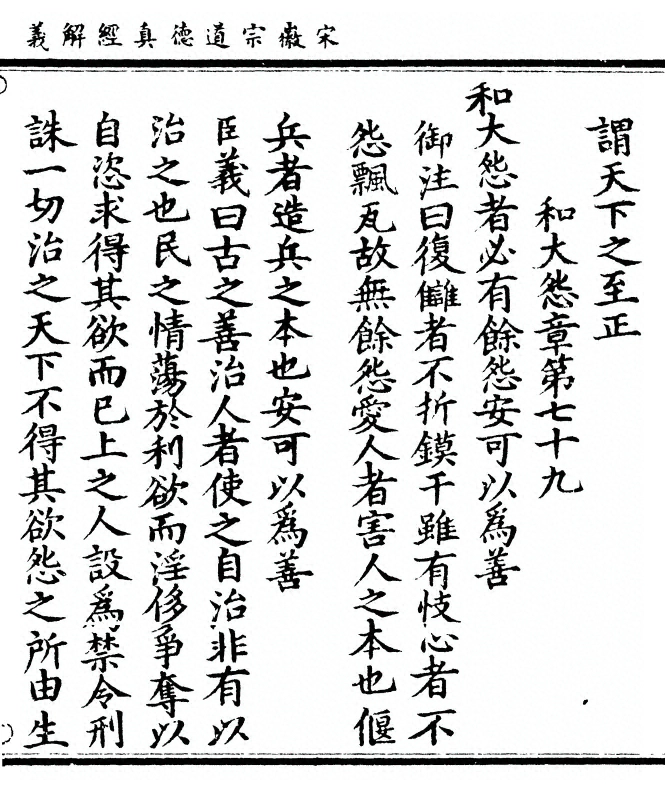 宋徽宗道德真經解義
謂天下之至正
和大怨章第七十九
和大怨者必有餘怨安可以為善
御注曰復讎者不折鏌干雖有忮心者不
怨飄瓦故無餘怨愛人者害人之本也偃
兵者造兵之本也安可以為善
臣義曰古之善治人者使之自治非有以
治之也民之情蕩於利欲而淫侈爭奪以
自恣求得其欲而已上之人設為禁令刑
誅一切治之天下不得其欲怨之所由生